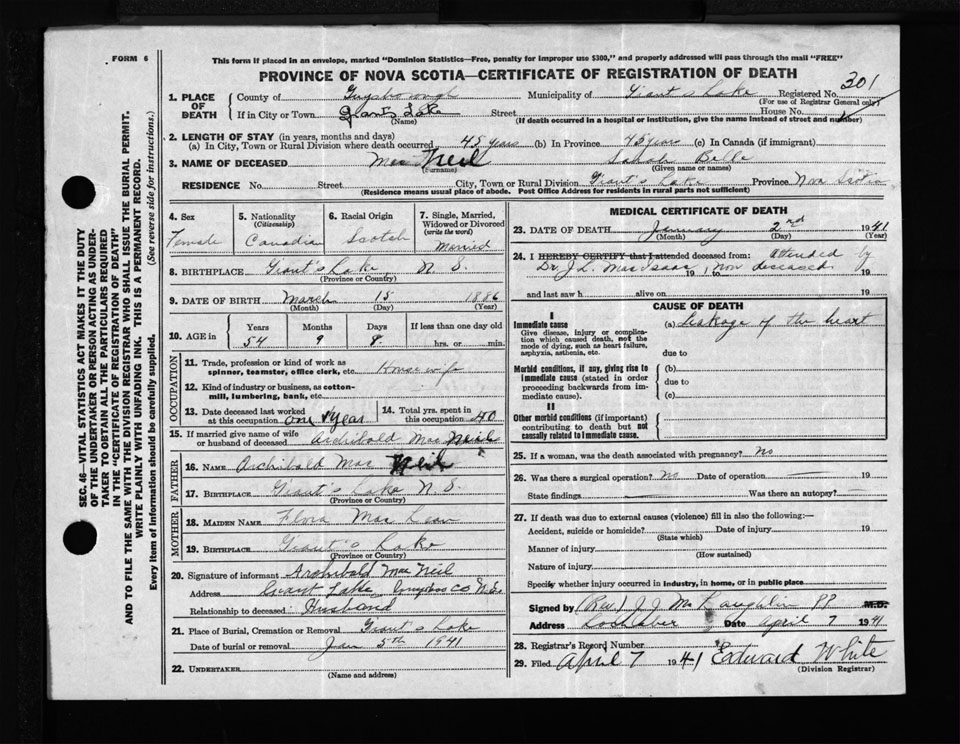 FORM 6
This form if placed in an envelope, marked "Dominion Statistics—Free, penalty for improper use $300," and properly addressed will pass through the mail "FREE"
PROVINCE OF NOVA SCOTIA—CERTIFICATE OF REGISTRATION OF DEATH
301
1. PLACE OF DEATH County of Guysborough Municipality of Giant's Lake Registered No.
(For use of Registrar General only)
If in City or Town Giants Lake Street House No.
(Name) (If death occurred in a hospital or institution, give the name instead of street and number)
2. LENGTH OF STAY (in years, months and days)
(a) In City, Town or Rural Division where death occurred 45 years (b) In Province 45 years (c) In Canada (if immigrant)
3. NAME OF DECEASED Mac Neil Sarah Belle
(Surname) (Given name or names)
RESIDENCE No. Street City, Town or Rural Division Giant's Lake Province Nova Scotia
(Residence means usual place of abode. Post Office Address for residents in rural parts not sufficient)
4. Sex Female
5. Nationality (Citizenship) Canadian
6. Racial Origin Scotch
7. Single, Married, Widowed or Divorced (write the word) Married
8. BIRTHPLACE Giant's Lake N. S.
(Province or Country)
9. DATE OF BIRTH March 15 1886
(Month) (Day) (Year)
10. AGE in Years Months Days If less than one day old
54 9 8 hrs. or min.
OCCUPATION
11. Trade, profession or kind of work as spinner, teamster, office clerk, etc. Housewife
12. Kind of industry or business, as cotton-mill, lumbering, bank, etc.
13. Date deceased last worked at this occupation one year
14. Total yrs. spent in this occupation 40
15. If married give name of wife or husband of deceased Archibald Mac Neil
FATHER
16. NAME Archibald Mac Neil
17. BIRTHPLACE Giant's Lake N. S.
(Province or Country)
MOTHER
18. MAIDEN NAME Flora Mac Lean
19. BIRTHPLACE Giant's Lake
(Province or Country)
20. Signature of informant Archibald Mac Neil
Address Giant Lake Guysboro Co N.S.
Relationship to deceased Husband
21. Place of Burial, Cremation or Removal Giant's Lake
Date of burial or removal Jan 5th 1941
22. UNDERTAKER
(Name and address)
MEDICAL CERTIFICATE OF DEATH
23. DATE OF DEATH January 2nd 1941
(Month) (Day) (Year)
24. I HEREBY CERTIFY that I attended deceased from: attended by
Dr. J. L. MacIsaac 19 , to now deceased 19
and last saw h alive on 19
CAUSE OF DEATH
I
Immediate cause
Give disease, injury or complication which caused death, not the mode of dying, such as heart failure, asphyxia, asthenia, etc.
(a) Leakage of the heart
due to
Morbid conditions, if any, giving rise to immediate cause (stated in order proceeding backwards from immediate cause).
(b)
due to
(c)
II
Other morbid conditions (if important) contributing to death but not causally related to Immediate cause.
25. If a woman, was the death associated with pregnancy? No
26. Was there a surgical operation? No Date of operation 19
State findings Was there an autopsy?
27. If death was due to external causes (violence) fill in also the following:—
Accident, suicide or homicide? Date of injury 19
(State which)
Manner of injury
(How sustained)
Nature of injury
Specify whether injury occurred in industry, in home, or in public place
Signed by (Rev.) J. J. McLaughlin PP M.D.
Address Lochaber Date April 7 1941
28. Registrar's Record Number
29. Filed April 7 1941 Edward White
(Division Registrar)
SEC. 46—VITAL STATISTICS ACT MAKES IT THE DUTY
OF THE UNDERTAKER OR PERSON ACTING AS UNDER-
TAKER TO OBTAIN ALL THE PARTICULARS REQUIRED
IN THE "CERTIFICATE OF REGISTRATION OF DEATH"
AND TO FILE THE SAME WITH THE DIVISION REGISTRAR WHO SHALL ISSUE THE BURIAL PERMIT.
WRITE PLAINLY WITH UNFADING INK. THIS IS A PERMANENT RECORD.
Every item of information should be carefully supplied. (See reverse side for instructions.)